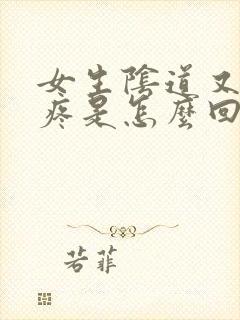 女生陰道又
疼是怎麼回
若菲